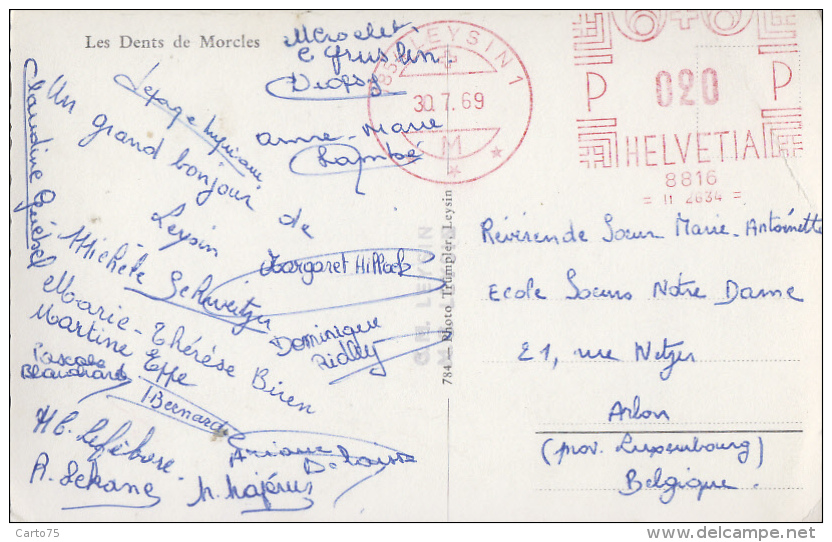 Les Dents de Morcles
Un grand bonjour de
Leysin
Claudine
Lepage
Anne-Marie
Lambé
Michèle Schweitzer
Margaret Hillock
Marie-Thérèse Biren
Dominique
Ridley
Martine Eppe
Pascale
Blanchard
Bernard
H.C. Lefèbvre.
Ariane
R. Lekane
n. hajérus
1854 LEYSIN 1
30.7.69
M
P 020 P
HELVETIA
8816
= II 2634 =
784 — Photo Trumpler, Leysin
LEYSIN
Révérende Soeur Marie-Antoinette
Ecole Soeurs Notre Dame
21, rue Netzer
Arlon
(prov. Luxembourg)
Belgique.
Carto75
www.delcampe.net